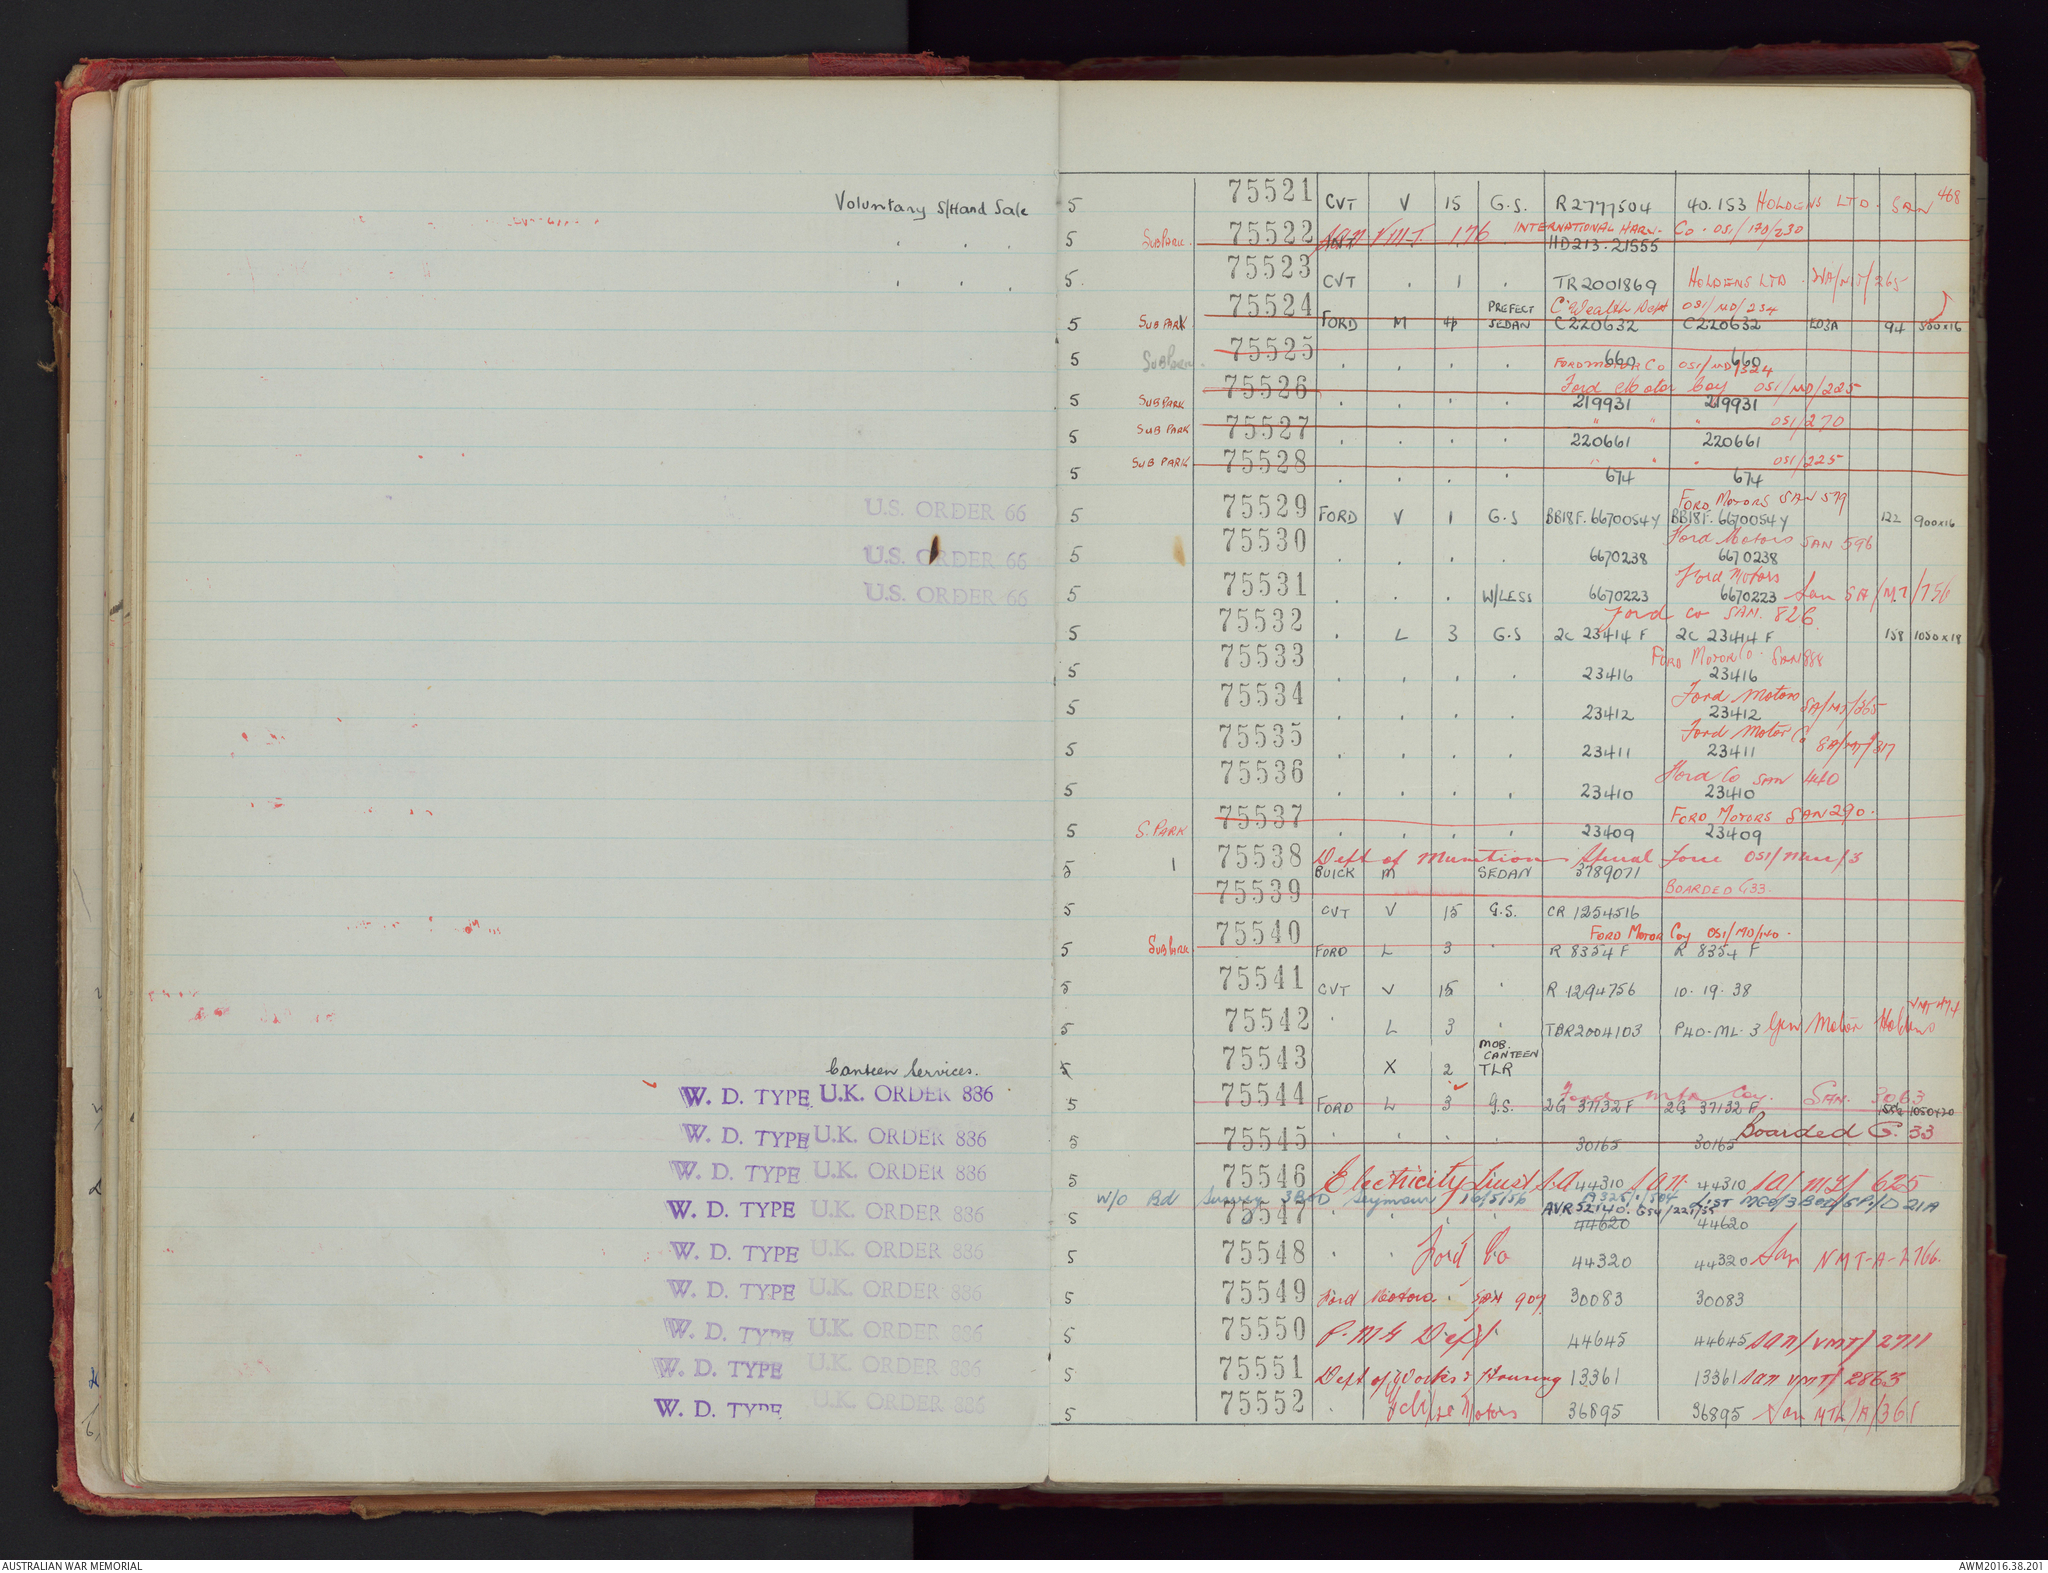 Voluntary S/Hand Sale 5 75521 CVT V 15 G.S. R2777504 40.153 HOLDENS LTD. SAN 468
INTERNATIONAL HARV. Co. OSI/170/230
" " " 5 SUBPARK. 75522 176 HD213.21555
" " " 5 75523 CVT . 1 . TR2001869 HOLDENS LTD.
PREFECT C'Wealth Dept OSI/MD/254
5 SUB PARK 75524 FORD M 4P SEDAN C220632 C220632 E03A 94 500x16
5 SUBPARK 75525 . . . . 660 660
FORD MOTOR Co OSI/MD/324
Ford Motor Coy OSI/MD/225
5 SUBPARK 75526 . . . . 219931 219931
" " " OSI/270
5 SUB PARK 75527 . . . . 220661 220661
" " " OSI/225
5 SUB PARK 75528 . . . . 674 674
FORD MOTORS SAN 579
U.S. ORDER 66 5 75529 FORD V 1 G.S BB18F.6670054Y BB18F.6670054Y 122 900x16
Ford Motors SAN 596
U.S. ORDER 66 5 75530 . . . . 6670238 6670238
Ford Motors
U.S. ORDER 66 5 75531 . . . W/LESS 6670223 6670223 San SA/MT/756
Ford Co SAN. 826.
5 75532 . L 3 G.S 2C 23414 F 2C 23414 F 158 1050x18
FORD MOTOR Co. SAN 888
5 75533 . . . . 23416 23416
Ford Motors SA/MT/365
5 75534 . . . . 23412 23412
Ford Motor Co SA/MT/317
5 75535 . . . . 23411 23411
Ford Co SAN 440
5 75536 . . . . 23410 23410
FORD MOTORS SAN 290.
5 S. PARK 75537 . . . . 23409 23409
75538 Dept of Munitions OSI/Mun/3
5 1 BUICK M SEDAN 3789071
75539 BOARDED G33.
5 CVT V 15 G.S. CR 1254516
FORD MOTOR Coy OSI/MD/140.
5 SUBPARK 75540 FORD L 3 " R 8354 F R 8354 F
5 75541 CVT V 15 " R 1294756 10. 19. 38
5 75542 " L 3 " TBR2004103 P40-ML-3 Gen Motor Holdens VMT 474
MOB.
CANTEEN
Canteen Services. 5 75543 X 2 TLR
W. D. TYPE U.K. ORDER 886 5 75544 FORD L 3 G.S. 2G 37132 F 2G 37132 F SAN. 3063 1050x20
W. D. TYPE U.K. ORDER 886 5 75545 . . . . 30165 30165 Boarded G. 33
W. D. TYPE U.K. ORDER 886 5 75546 Electricity Trust S.A 44310 SAN. 44310 SA/MT/625
W/O Bd Survey 3BOD Seymour 16/5/56
W. D. TYPE U.K. ORDER 886 5 75547 AVR 52140. 44620 44620
W. D. TYPE U.K. ORDER 886 5 75548 Ford Co 44320 44320 San NMT-A-2766.
W. D. TYPE U.K. ORDER 886 5 75549 Ford Motors. SAN 907 30083 30083
W. D. TYPE U.K. ORDER 886 5 75550 P.M.G Dept 44645 44645 SAN/VMT/2711
W. D. TYPE U.K. ORDER 886 5 75551 Dept of Works & Housing 13361 13361 San VMT/2863
W. D. TYPE U.K. ORDER 886 5 75552 Motors 36895 36895 San
AUSTRALIAN WAR MEMORIAL AWM2016.38.201